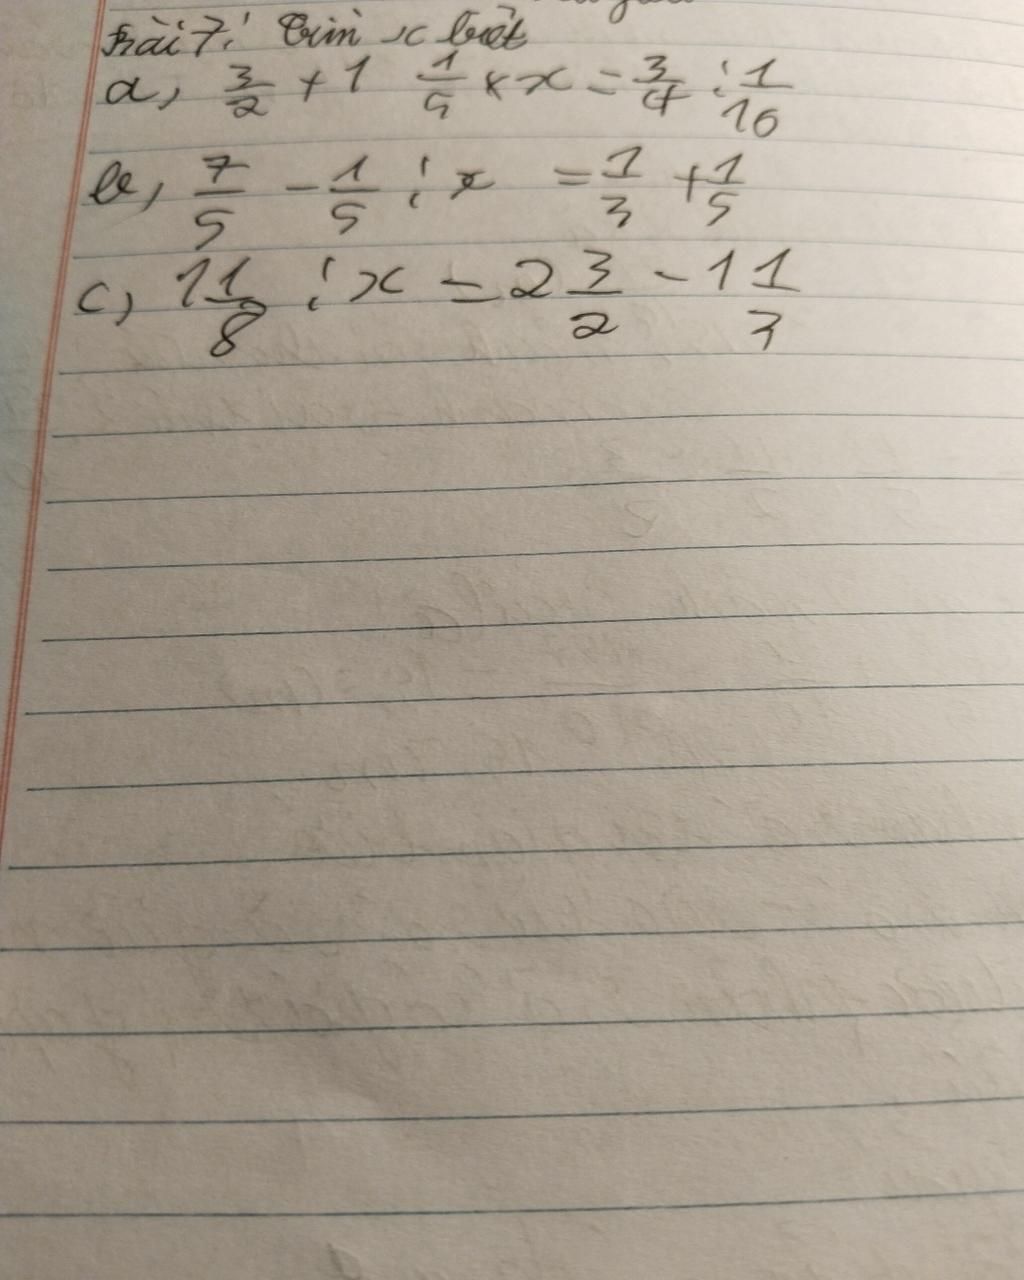 Bài 7: Tìm x biết
a, 3/2 + 1 1/5 × x = 3/4 : 1/16
b, 7/5 - 1/5 : x = 1/3 + 1/5
c, 11/8 : x = 2 3/2 - 1 1/3